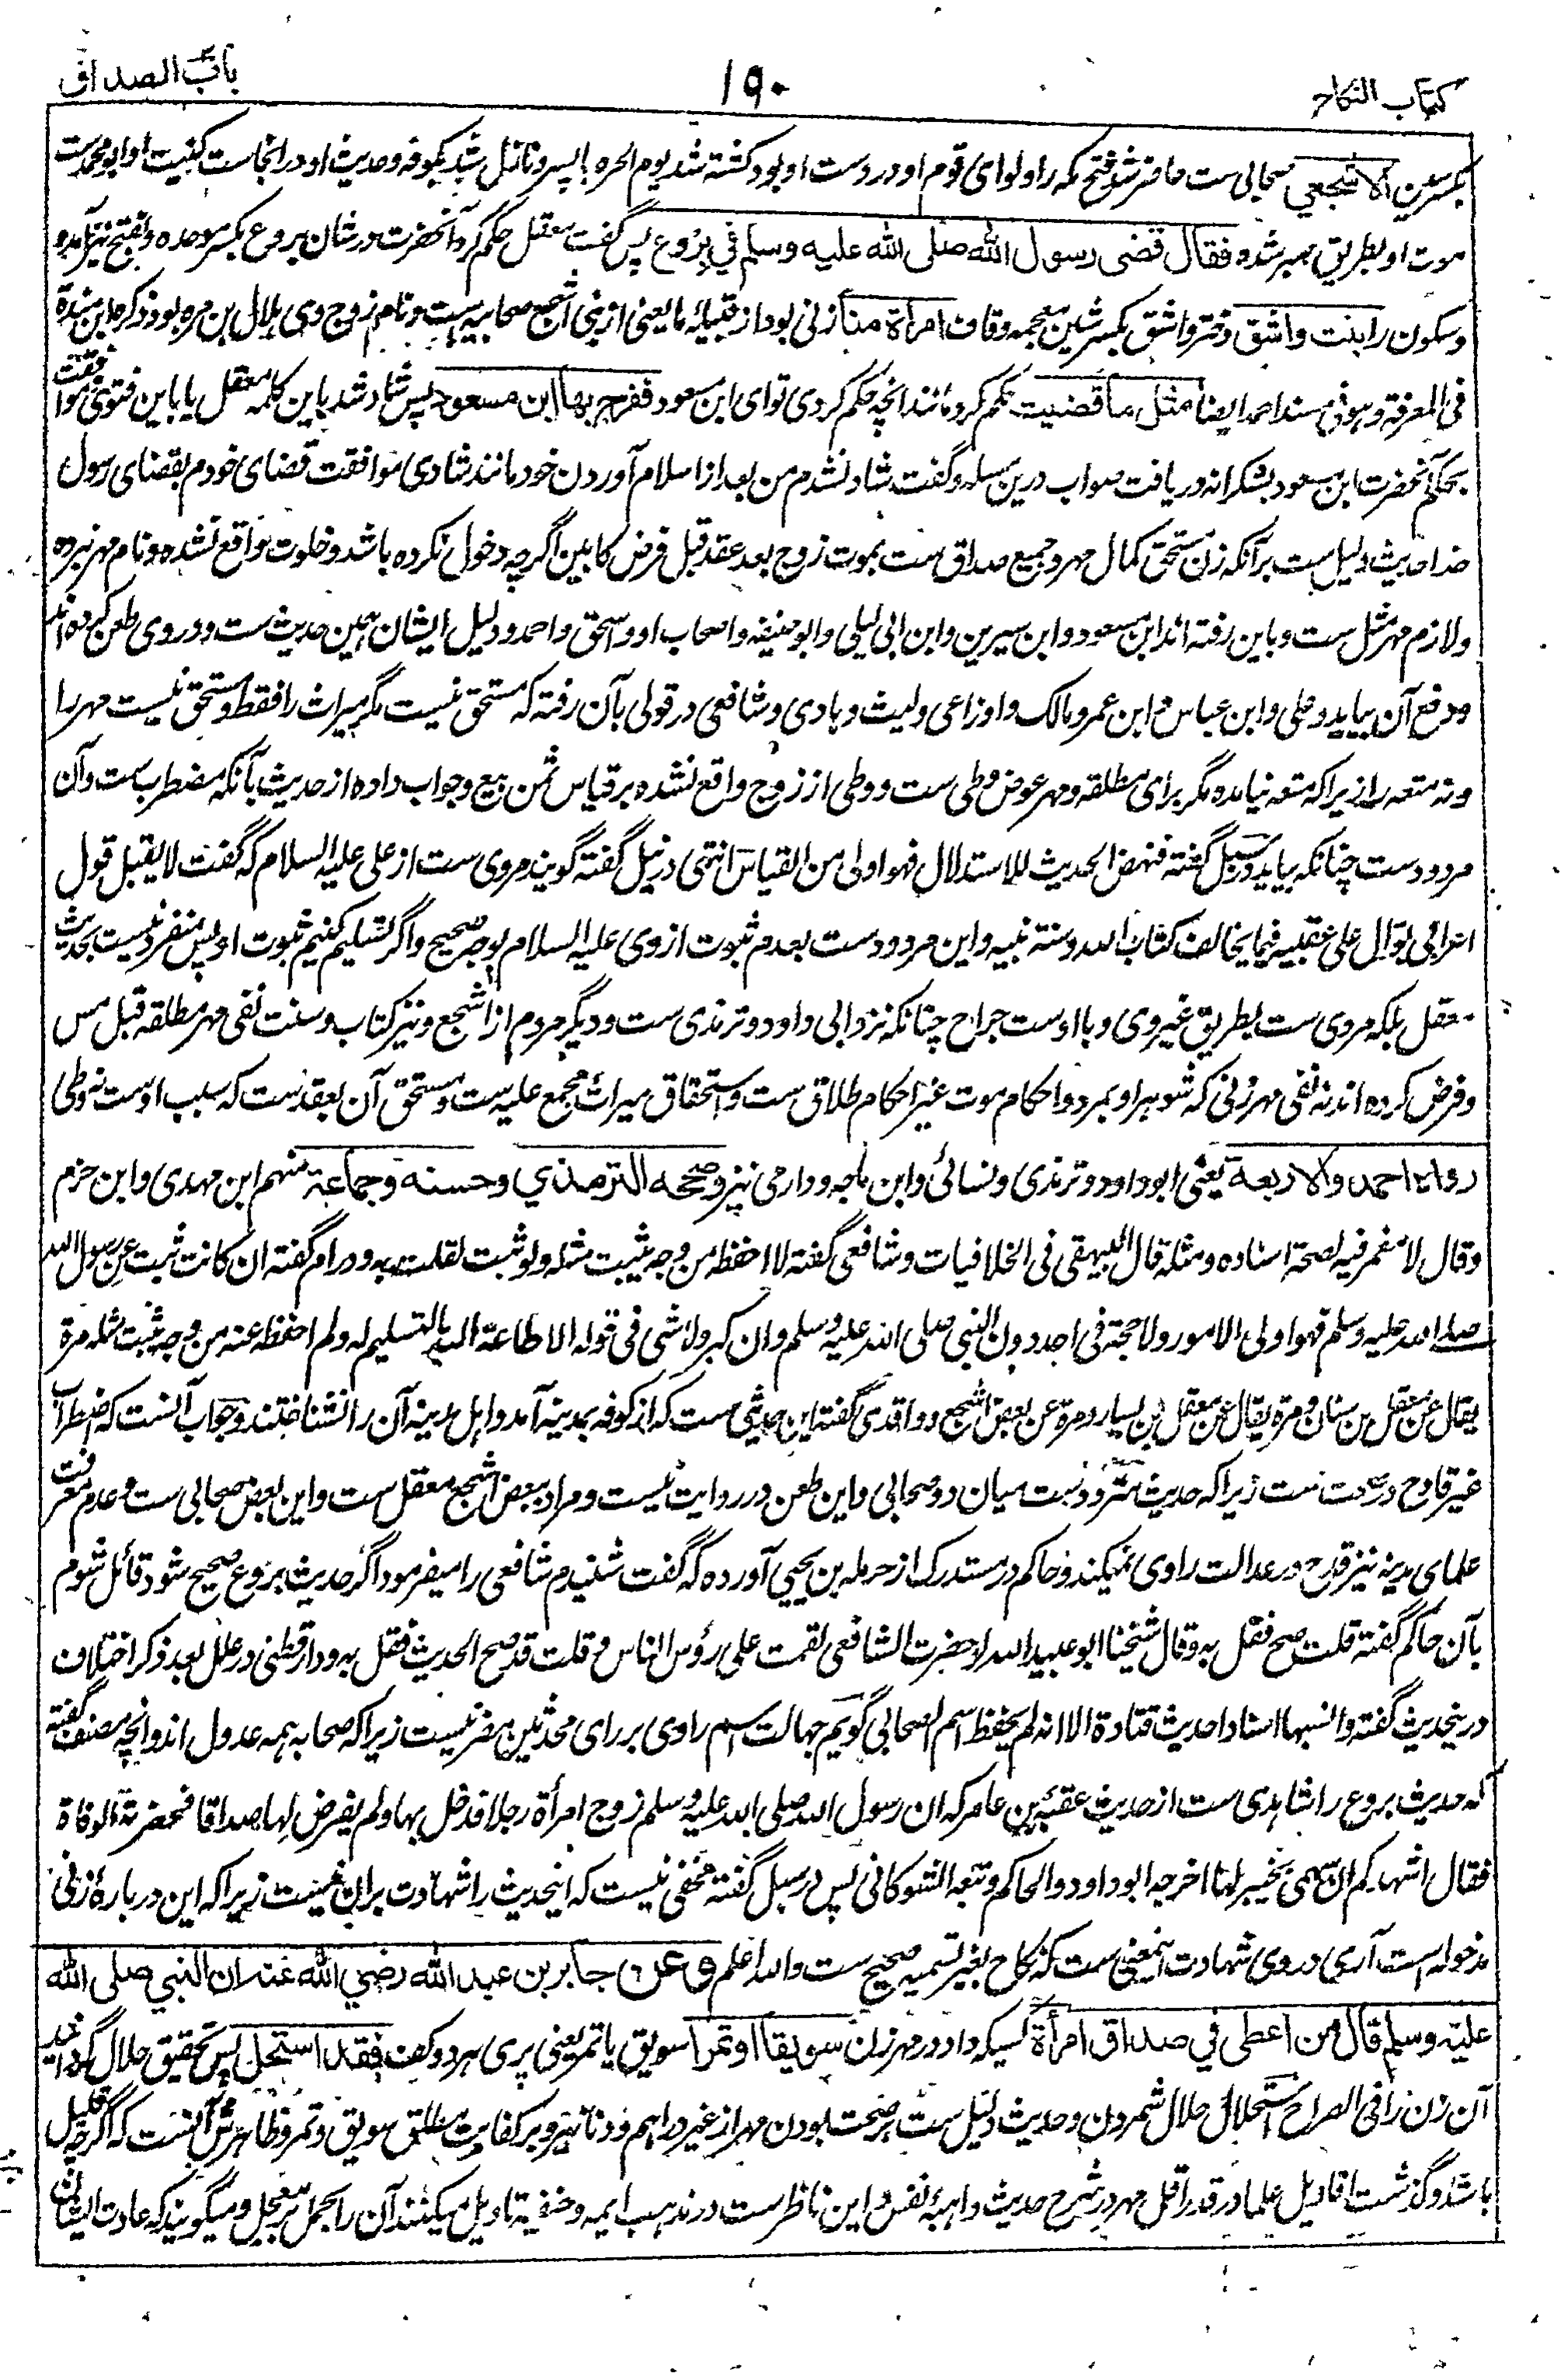 کتاب النکاح
۱۹۰
باب الصداق
بکسر سین الاشجعي صحابی ست حاضر شد فتح مکه را و لوای قوم او در دست او بود کشته شد یوم الحره با پسر و نازل شد بکوفه و حدیث او در انجاست کنیت او ابو محمد ست
موت او بطریق صبر شده فقال قضی رسول الله صلی الله علیه وسلم في بِرْوع پس گفت معقل حکم کرد آنحضرت در شان بروع بکسر موحده و بفتح نیز آمده و
وسکون را بنت واشق دختر واشق بکسر شین معجمه وقاف امرأة منا زنی بود از قبیلهٔ ما یعنی از بنی اشجع صحابیه است و نام زوج وی هلال بن مره بود ذکره ابن مندة
فی المعرفة و هو فی مسند احمد ایضا مثل ما قضیت حکم کرد مانند انچه حکم کردی تو ای ابن مسعود ففرح بها ابن مسعود پس شاد شد باین کلمه معقل یا باین فتوی موافقت
بحکم آنحضرت ابن مسعود بشکرانه دریافت صواب درین مسئله و گفت شاد نشدم من بعد از اسلام آوردن خود مانند شادی موافقت قضای خودم بقضای رسول
خدا حدیث دلیل ست بر آنکه زن مستحق کمال مهر و جمیع صداق ست بموت زوج بعد عقد قبل فرض کابین اگرچه دخول نکرده باشد و خلوت واقع نشده و نام مهر نبرده
ولازم مهر مثل ست و باین رفته اند ابن مسعود و ابن سیرین و ابن ابی لیلی و ابو حنیفه و اصحاب او و اسحق و احمد و دلیل ایشان همین حدیث ست و در وی طعن کرده اند
و دفع آن بیاید و علی و ابن عباس و ابن عمر و مالک و اوزاعی و لیث و هادی و شافعی در قولی بآن رفته که مستحق نیست مگر میراث را فقط و مستحق نیست مهر را
و نه متعه را زیرا که متعه نیامده مگر برای مطلقه و مهر عوض وطی ست و وطی از زوج واقع نشده بر قیاس ثمن بیع و جواب داده از حدیث بآنکه مضطرب ست و آن
مردود ست چنانکه بیاید و در سبل گفته فنهض الحدیث للاستدلال فهو اولی من القیاس انتهی در نیل گفته گویند مروی ست از علی علیه السلام که گفت لا یقبل قول
اعرابی بوّال علی عقبیه فیما یخالف کتاب الله وسنة نبیه و این مردود ست بعدم ثبوت از وی علیه السلام بوجه صحیح و اگر تسلیم کنیم ثبوت او پس منفرد نیست بحدیث
معقل بلکه مروی ست بطریق غیر وی و با اوست جراح چنانکه نزد ابی داود و ترمذی ست و دیگر مردم از اشجع و نیز کتاب و سنت نفی مهر مطلقه قبل مس
و فرض کرده اند نه نفی مهر زنی که شوهر او بمرد و احکام موت غیر احکام طلاق ست و استحقاق میراث مجمع علیه ست و مستحق آن بعقد ست که سبب اوست نه وطی
رواه احمد والاربعة یعنی ابو داود و ترمذی و نسائی و ابن ماجه و دارمی نیز وصححه الترمذي وحسنه وجماعة منهم ابن مهدی و ابن حزم
وقال لا مغمز فیه لصحة اسناده ومثله قال البیهقی فی الخلافیات و شافعی گفته لا احفظه من وجه یثبت مثله ولو ثبت لقلت به و در ام گفته ان کانت ثبت عن رسول الله
صلی الله علیه وسلم فهو اولی الامور ولا حجة فی احد دون النبی صلی الله علیه وسلم وان کبر ولا شی فی قوله الا طاعة الله بالتسلیم له ولم احفظ عنه من وجه یثبت مثله مرة
یقال عن معقل بن سنان ومرة یقال عن معقل بن یسار ومرة عن بعض اشجع و واقدی گفته این حدیثی ست که از کوفه بمدینه آمد و اهل مدینه آن را نشناختند و جواب آنست که اضطراب
غیر قادح در صحت ست زیرا که حدیث متردد ست میان دو صحابی و این طعن در روایت نیست و مراد ببعض اشجع معقل ست و این بعض صحابی ست و عدم معرفت
علمای مدینه نیز قدح در عدالت راوی نمیکند و حاکم در مستدرک از حرمله بن یحیی آورده که گفت شنیدم شافعی را میفرمود اگر حدیث بروع صحیح شود قائل شوم
بآن حاکم گفته قلت صح فقل به وقال شیخنا ابو عبدالله لو حضرت الشافعی لقمت علی رؤس الناس وقلت قد صح الحدیث فقل به و دارقطنی در علل بعد ذکر اختلاف
درینحدیث گفته وانسبها اسنادا حدیث قتادة الا انه لم یحفظ اسم الصحابی گویم جهالت اسم راوی بر رای محدثین مضر نیست زیرا که صحابه همه عدول اند و انچه مصنف گفته
که حدیث بروع را شاهدی ست از حدیث عقبة بن عامر که ان رسول الله صلی الله علیه وسلم زوج امرأة رجلا فدخل بها ولم یفرض لها صداقا فحضرته الوفاة
فقال اشهدکم ان سهمی بخیبر لها اخرجه ابو داود والحاکم وتبعه الشوکانی پس در سبل گفته مخفی نیست که اینحدیث را شهادت بران نیست زیرا که این درباره زنی
مدخوله است آری در وی شهادت بمعنی ست که نکاح بغیر تسمیه صحیح ست والله اعلم وعن جابر بن عبد الله رضي الله عنه ان النبي صلی الله
علیه وسلم قال من اعطی في صداق امرأة کسیکه داد در مهر زن سویقا او تمرا سویق یا تمر یعنی پری هر دو کف فقد استحل پس تحقیق حلال گردانید
آن زن را فی الصراح استحلال حلال شمردن و حدیث دلیل ست بر صحت بودن مهر از غیر دراهم و دنانیر و بر کفایت مطلق سویق و تمر و ظاهرش آنست که اگرچه قلیل
باشد و گذشت اقاویل علما در قدر اقل مهر در شرح حدیث واهبه نفس و این ناظر ست در مذهب ایمه و حنفیه تاویل میکنند آن را بحمل بر معجل و میگویند که عادت ایشان